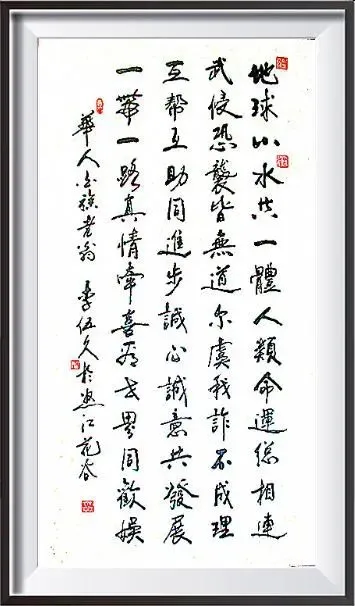 地球山水共一體人類命運總相連
武侵恐襲皆無道尔虞我詐不成理
互帮互助同進步誠心誠意共發展
一帶一路真情牽喜看世界同歡娱
華人白族老翁 李伍久於怒江花谷